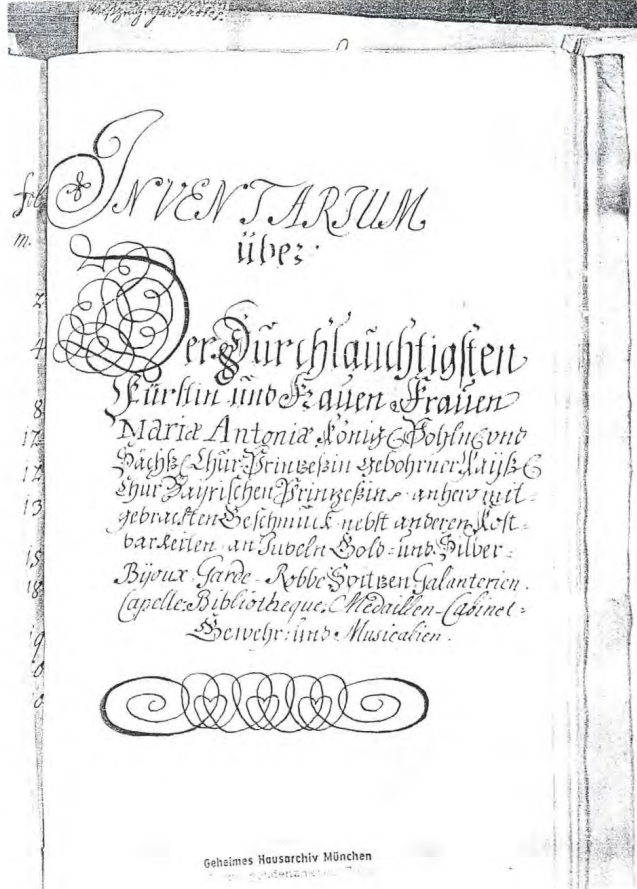 fol
m.
2
4
8
12
12
13
15
18
19
0
0
INVENTARIUM
über
Der Durchlauchtigsten
Fürstin und Frauen Frauen
Mariæ Antoniæ König: Pohln: und
Sächß: Chur Prinzeßin gebohrner Kayß:
Chur Bayrischen Prinzeßin anhero mit=
gebrachten Geschmuck nebst anderen Kost=
barkeiten an Jubeln Gold= und Silber=
Bijoux Garde-Robbe Spitzen Galanterien.
Capelle: Bibliotheque: Medaillen-Cabinet=
Gewehr: und Musicalien.
Geheimes Hausarchiv München